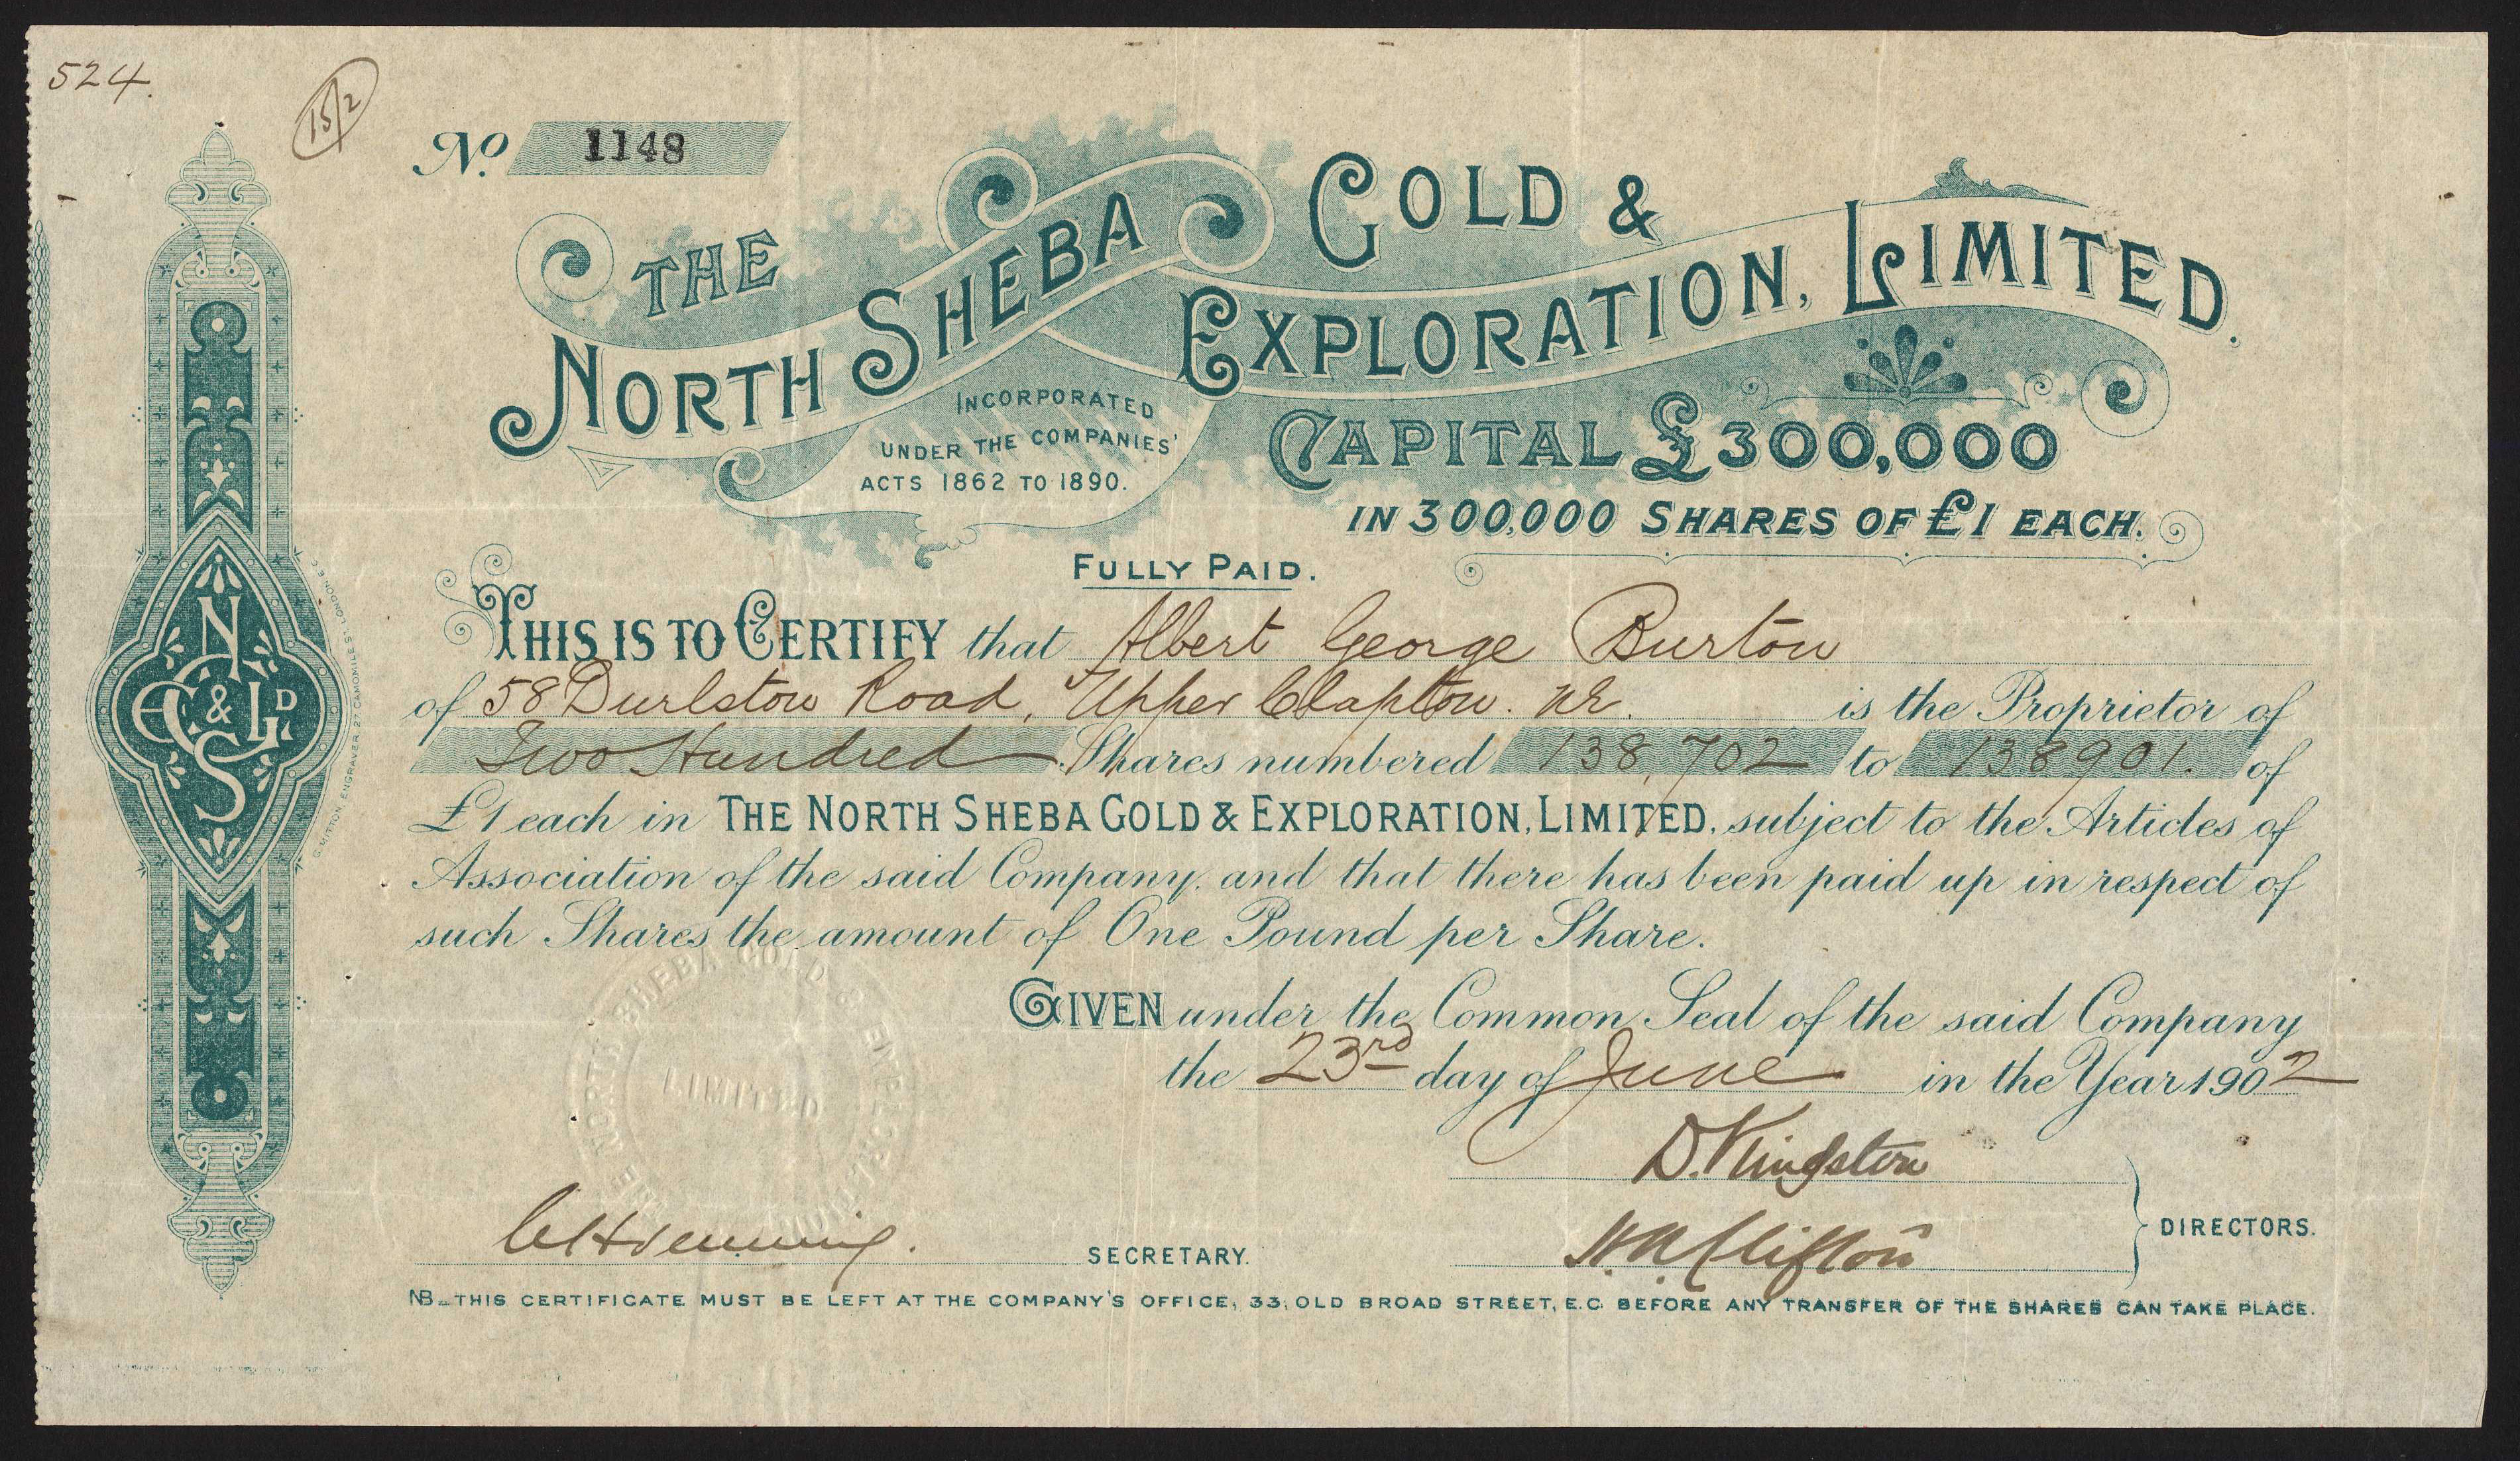 524.
15/2
No. 1148
THE
NORTH SHEBA
GOLD &
EXPLORATION, LIMITED.
INCORPORATED
UNDER THE COMPANIES'
ACTS 1862 TO 1890.
CAPITAL £300,000
IN 300,000 SHARES OF £1 EACH.
FULLY PAID.
THIS IS TO CERTIFY that Albert George Burton
of 58 Durlston Road, Upper Clapton. NE. is the Proprietor of
Two Hundred Shares numbered 138,702 to 138901. of
£1 each in THE NORTH SHEBA GOLD & EXPLORATION, LIMITED, subject to the Articles of
Association of the said Company, and that there has been paid up in respect of
such Shares the amount of One Pound per Share.
GIVEN under the Common Seal of the said Company
the 23rd day of June in the Year 1902
D. Kingston
H.A. Clifton
DIRECTORS.
SECRETARY.
NB_THIS CERTIFICATE MUST BE LEFT AT THE COMPANY'S OFFICE, 33, OLD BROAD STREET, E.C. BEFORE ANY TRANSFER OF THE SHARES CAN TAKE PLACE.
N S G & E LD
G. MITTON, ENGRAVER 27 CAMOMILE ST. LONDON E.C.
THE NORTH SHEBA GOLD & EXPLORATION
LIMITED